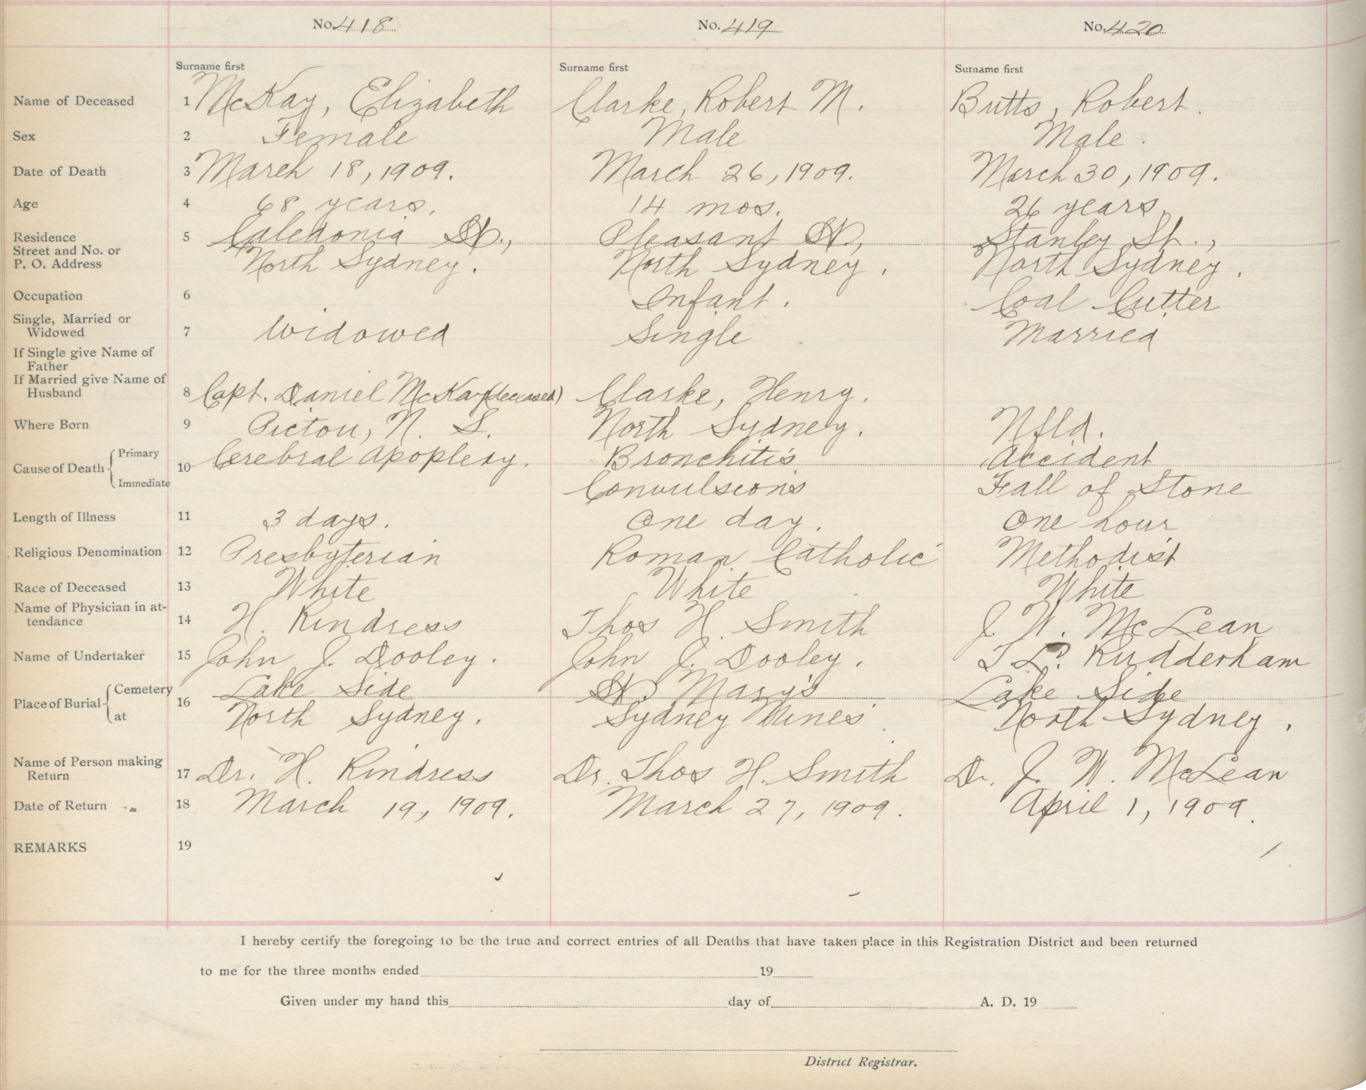 No. 418 No. 419 No. 420
Surname first Surname first Surname first
Name of Deceased 1 McKay, Elizabeth Clarke, Robert M. Butts, Robert.
Sex 2 Female Male Male.
Date of Death 3 March 18, 1909. March 26, 1909. March 30, 1909.
Age 4 68 years. 14 mos. 26 years
Residence 5 Caledonia St., Pleasant St., Stanley St.,
Street and No. or
P. O. Address North Sydney. North Sydney. North Sydney.
Occupation 6 Infant. Coal Cutter
Single, Married or
Widowed 7 Widowed Single Married
If Single give Name of
Father
If Married give Name of
Husband 8 Capt. Daniel McKay (deceased) Clarke, Henry.
Where Born 9 Pictou, N. S. North Sydney. Nfld.
Cause of Death Primary 10 Cerebral Apoplexy. Bronchitis Accident
Immediate Convulsions Fall of Stone
Length of Illness 11 3 days. One day. One hour
Religious Denomination 12 Presbyterian Roman Catholic Methodist
Race of Deceased 13 White White White
Name of Physician in at-
tendance 14 H. Rindress Thos H. Smith J. W. McLean
Name of Undertaker 15 John J. Dooley. John J. Dooley. Rudderham
Place of Burial Cemetery 16 Lake Side St. Mary's Lake Side
at North Sydney. Sydney Mines North Sydney.
Name of Person making
Return 17 Dr. H. Rindress Dr. Thos H. Smith Dr. J. W. McLean
Date of Return 18 March 19, 1909. March 27, 1909. April 1, 1909.
REMARKS 19
I hereby certify the foregoing to be the true and correct entries of all Deaths that have taken place in this Registration District and been returned
to me for the three months ended 19
Given under my hand this day of A. D. 19
District Registrar.